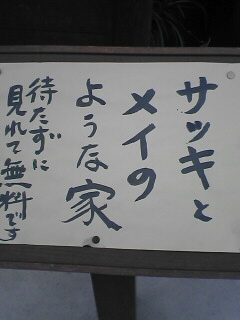 サツキと
メイの
ような家
待たずに
見れて無料です